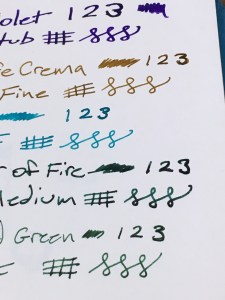 olet 1 2 3
tub
e Crema
Fine
1 2 3
r of Fire 1 2 3
Medium
Green 1 2 3